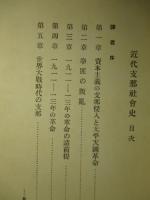 近代支那社會史 目次
譯者序
第一章 資本主義の支那侵入と太平天國革命
第二章 拳匪の叛亂
第三章 一九一一—一三年の革命の諸前提
第四章 一九一一—一三年の革命
第五章 世界大戰時代の支那